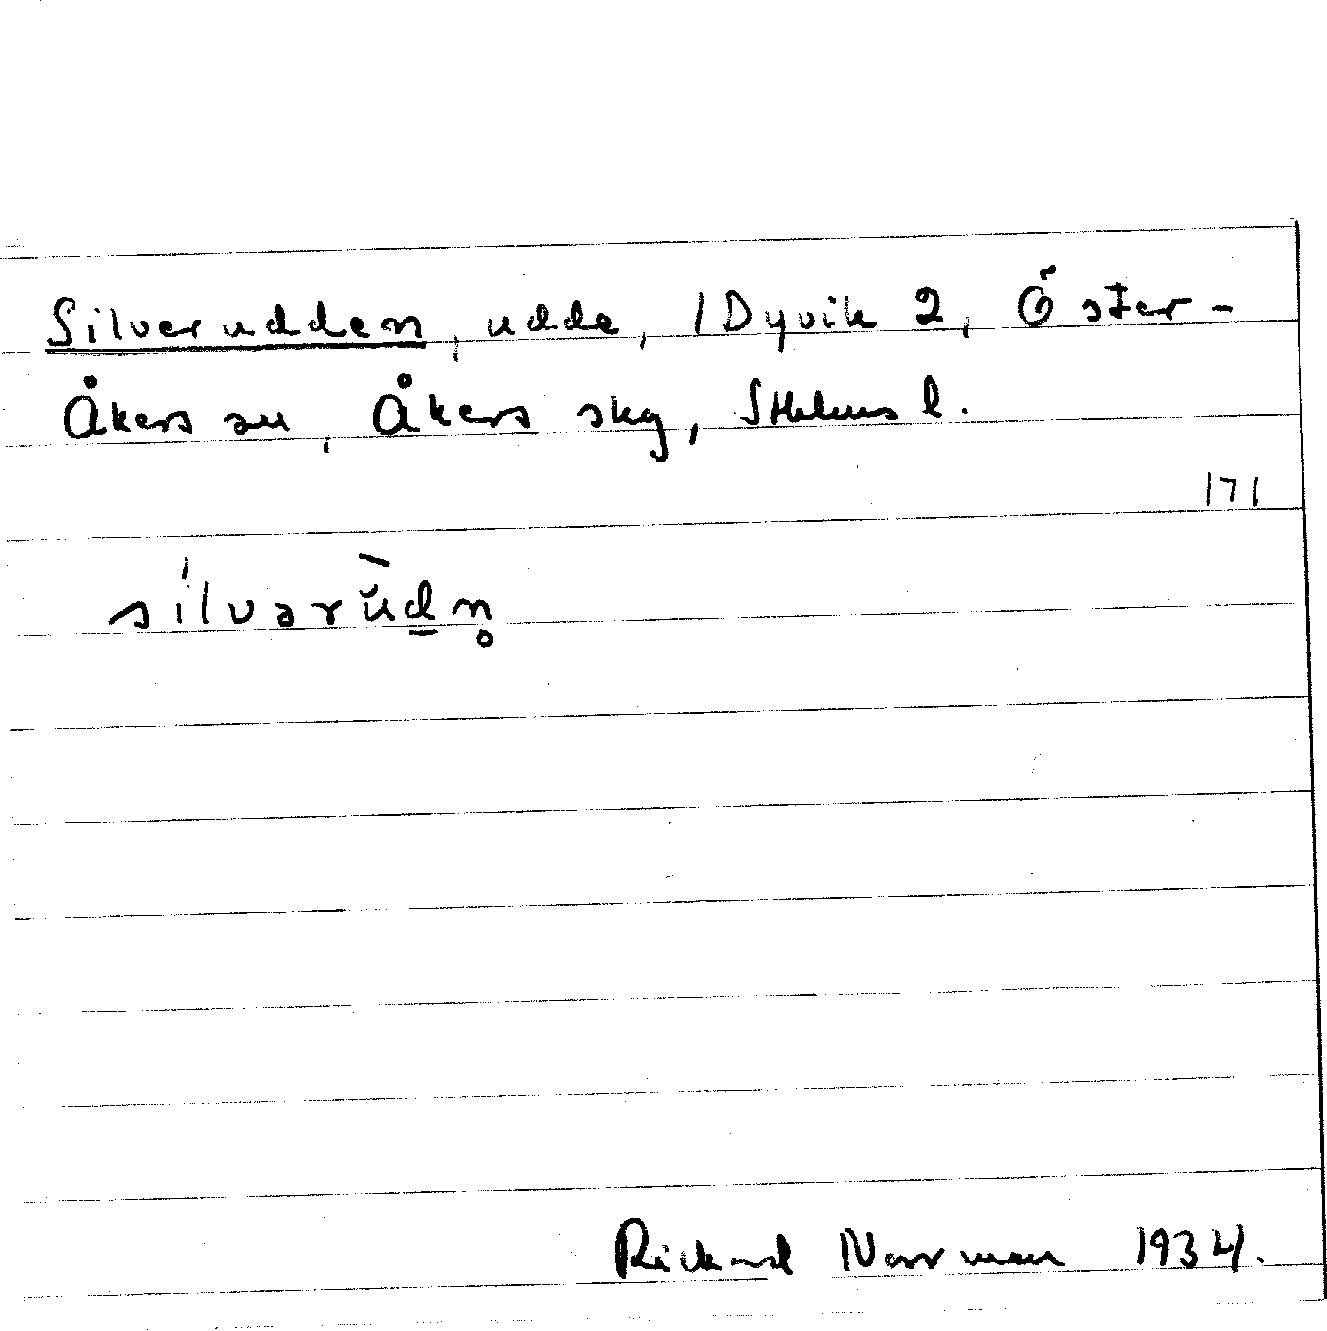 Silverudden, udde, 1 Dyvik 2, Öster-
Åkers sn, Åkers skg, Sthlms l.
171
sílvərùd̲n̥
Rickard Norrman 1934.